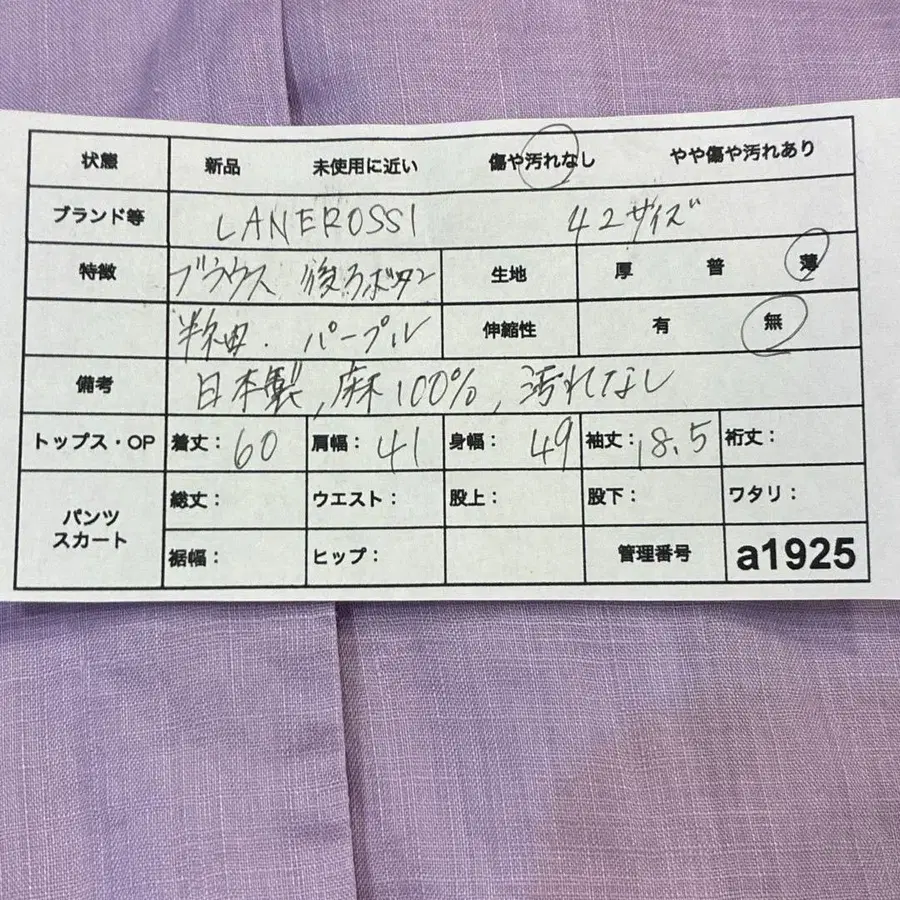 状態 新品 未使用に近い 傷や汚れなし やや傷や汚れあり
ブランド等 LANEROSSI 42サイズ
特徴 ブラウス 後ろボタン 生地 厚 普 薄
半袖. パープル 伸縮性 有 無
備考 日本製, 麻100%, 汚れなし
トップス・OP 着丈: 60 肩幅: 41 身幅: 49 袖丈: 18.5 裄丈:
パンツ スカート 総丈: ウエスト: 股上: 股下: ワタリ:
裾幅: ヒップ: 管理番号 a1925